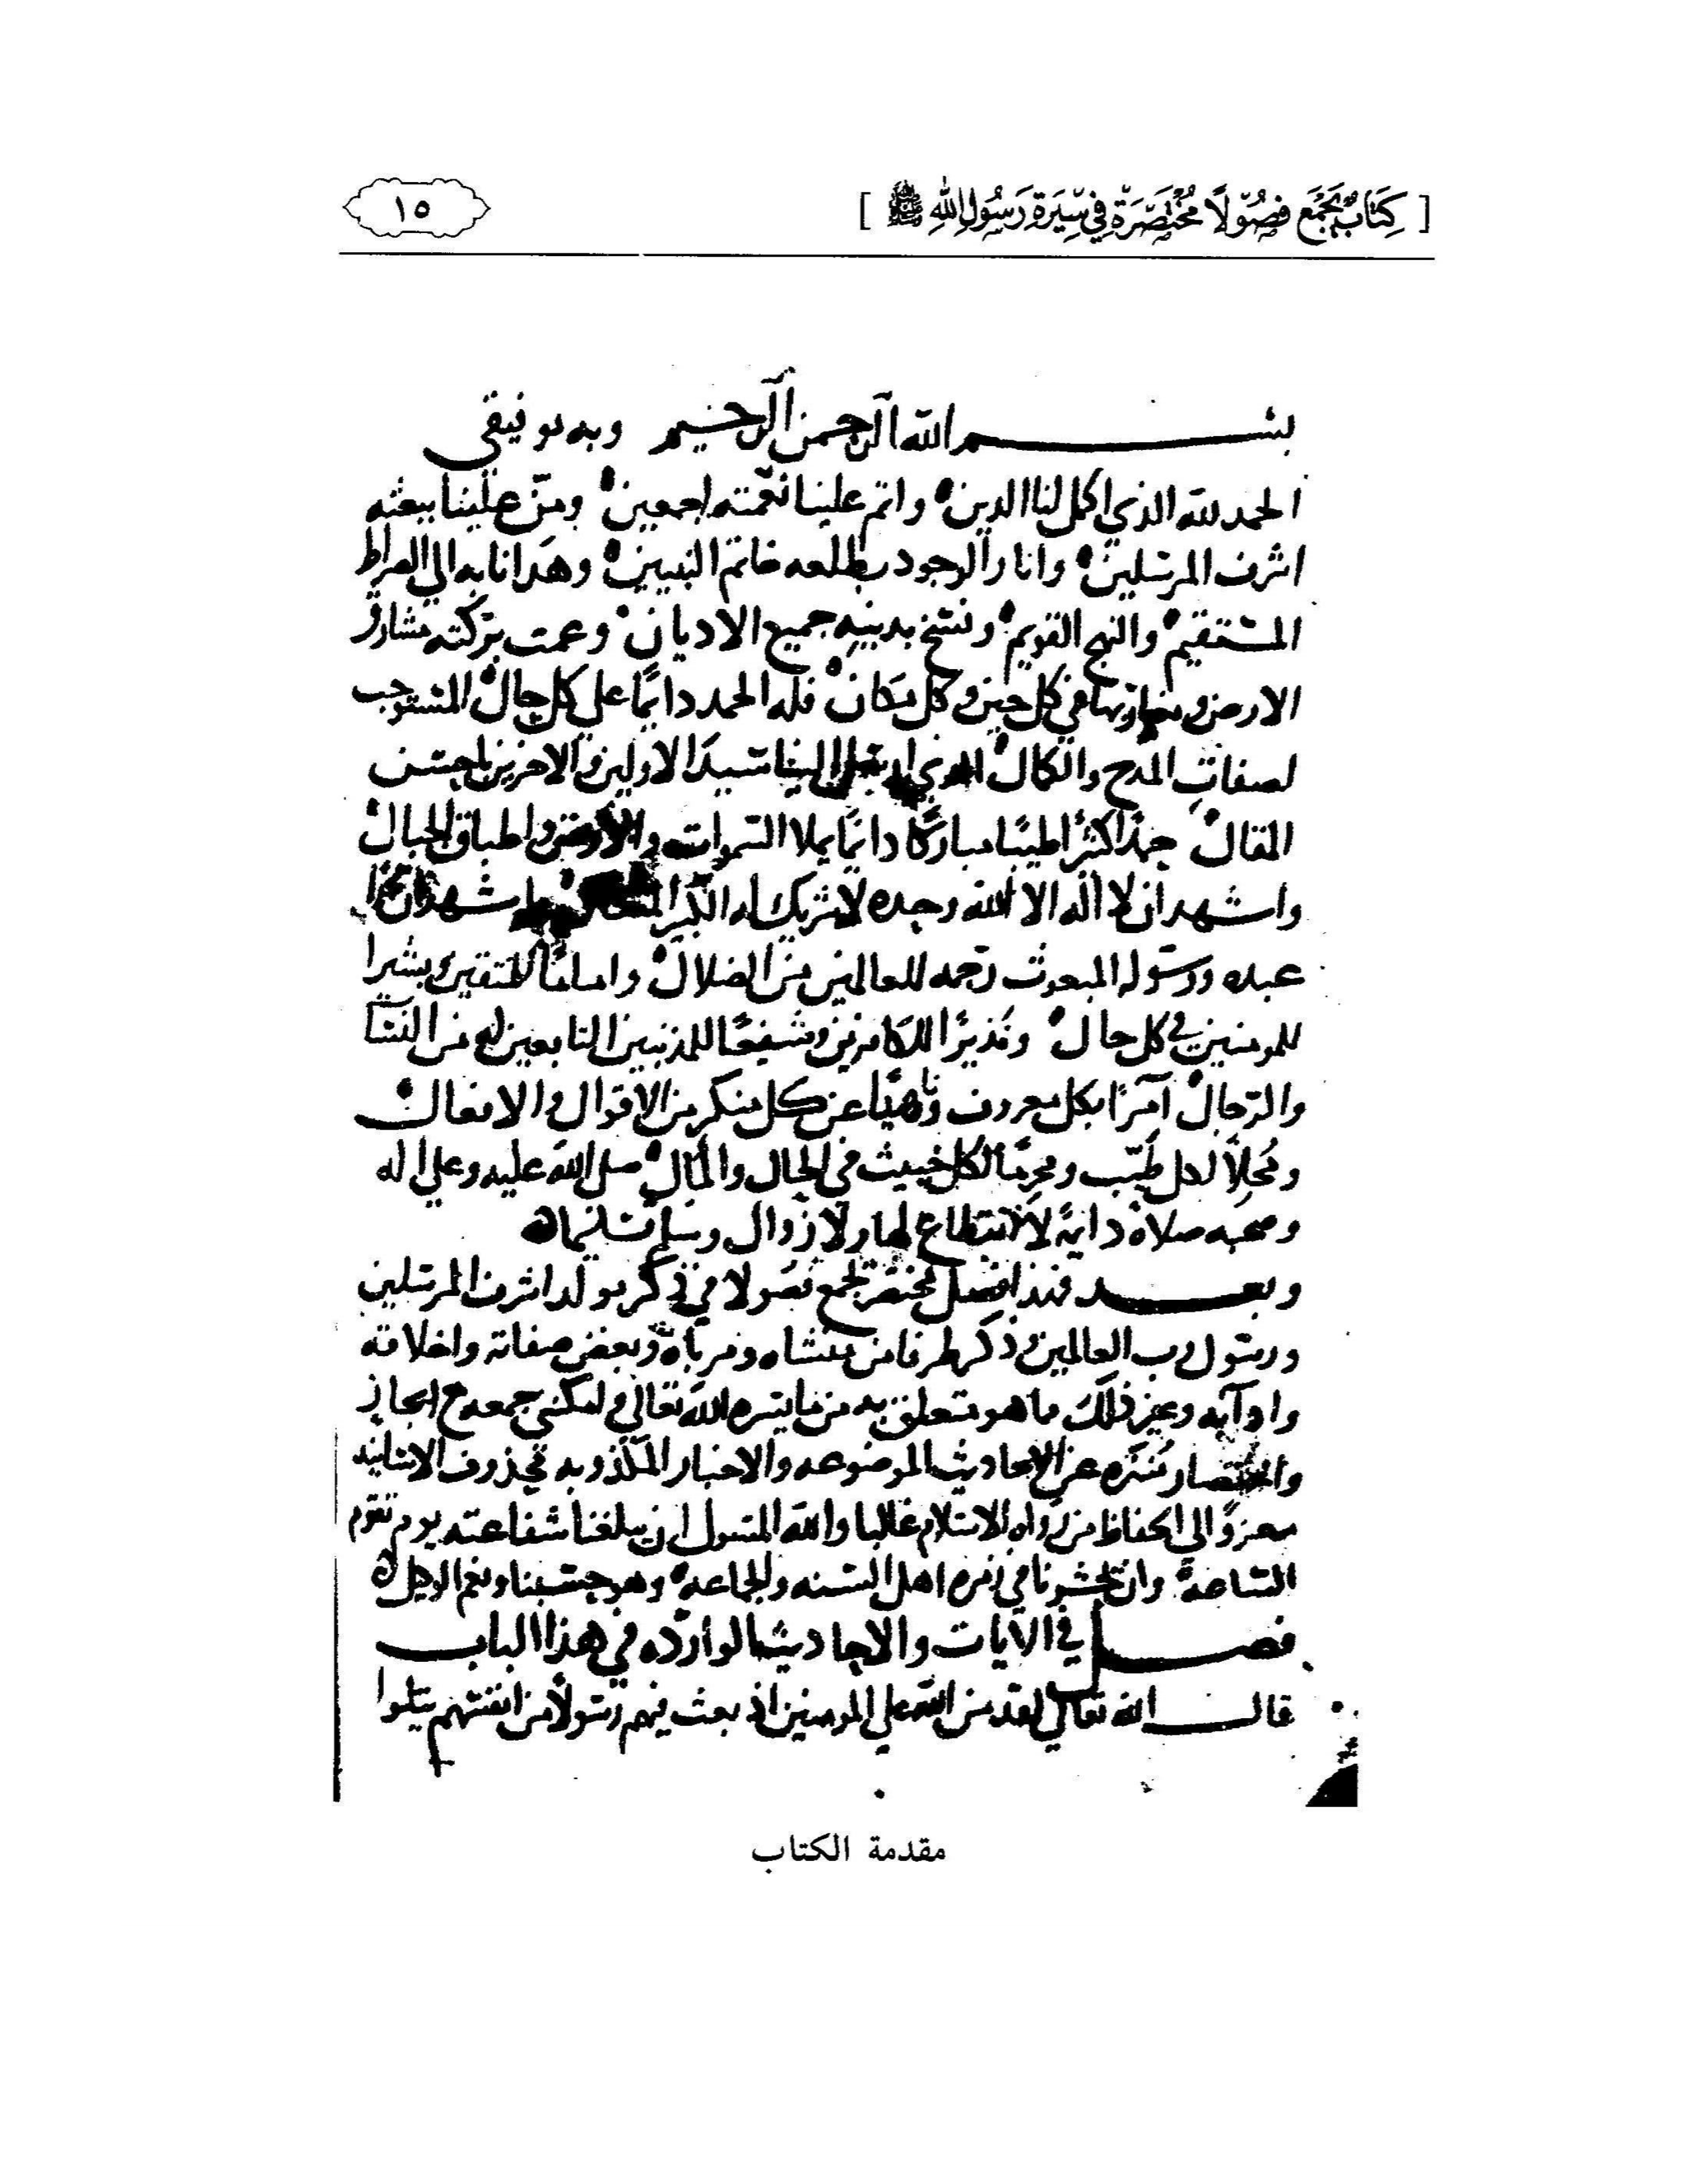 [ كِتَابٌ يَجْمَع فُصُوْلاً مُخْتَصَرَة فِي سِيْرَة رَسُوْلِ اللهِ ﷺ ]
١٥
بسم الله الرحمن الرحيم وبه توفيقي
الحمد لله الذي اكمل لنا الدين واتم علينا نعمته اجمعين ومنّ علينا ببعثه
اشرف المرسلين وانار الوجود بطلعه خاتم النبيين وهدانا به الي الصراط
المستقيم والنهج القويم ونسخ بدينه جميع الاديان وعمت بركته مشارق
الارض ومغاربها في كل حين وكل مكان فله الحمد دائمًا علي كل حال المستوجب
لصفات المدح والكمال الذي الينا سيد الاولين والاخرين باحسن
المقال حمدًا كثيرًا طيبًا مباركًا دائمًا يملا السموات والارض واطباق الجبال
واشهد ان لا اله الا الله وحده لا شريك له الكبير المتعال واشهد ان محمدًا
عبده ورسوله المبعوث رحمه للعالمين من الضلال وامامًا للمتقين وبشيرا
للمومنين في كل حال ونذيرًا للكافرين وشفيعًا للمذنبين التابعين له من النسا
والرجال آمرًا بكل معروف وناهيًا عن كل منكر من الاقوال والافعال
ومُحِلاً لكل طيّب ومحرمًا لكل خبيث في الحال والمآل صلى الله عليه وعلي اله
وصحبه صلاة دايمةً لا انقطاع لها ولا زوال وسلم تسليما
وبعد فهذا فصل مختصر تجمع فصولا في ذكر مولد اشرف المرسلين
ورسول رب العالمين وذكر طرفا من منشاه ومرباه وبعض صفاته واخلاقه
وادآبه وغير ذلك ما هو متعلق به من ما يسره الله تعالي وامكنني جمعه مع ايجاز
واختصار مُنَزّه عن الاحاديث الموضوعه والاخبار المكذوبه محذوف الاسانيد
معزوًا الي الحفاظ من رُواه الاسلام غالبا والله المسول ان يبلغنا شفاعته يوم تقوم
الساعة وان يحشرنا في زمره اهل السنه والجماعه وهو حسبنا ونعم الوكيل
فصل في الآيات والاحاديث الوارده في هذا الباب
قال الله تعالي لقد من الله علي المومنين اذ بعث فيهم رسولاً من انفسهم يتلوا
مقدمة الكتاب